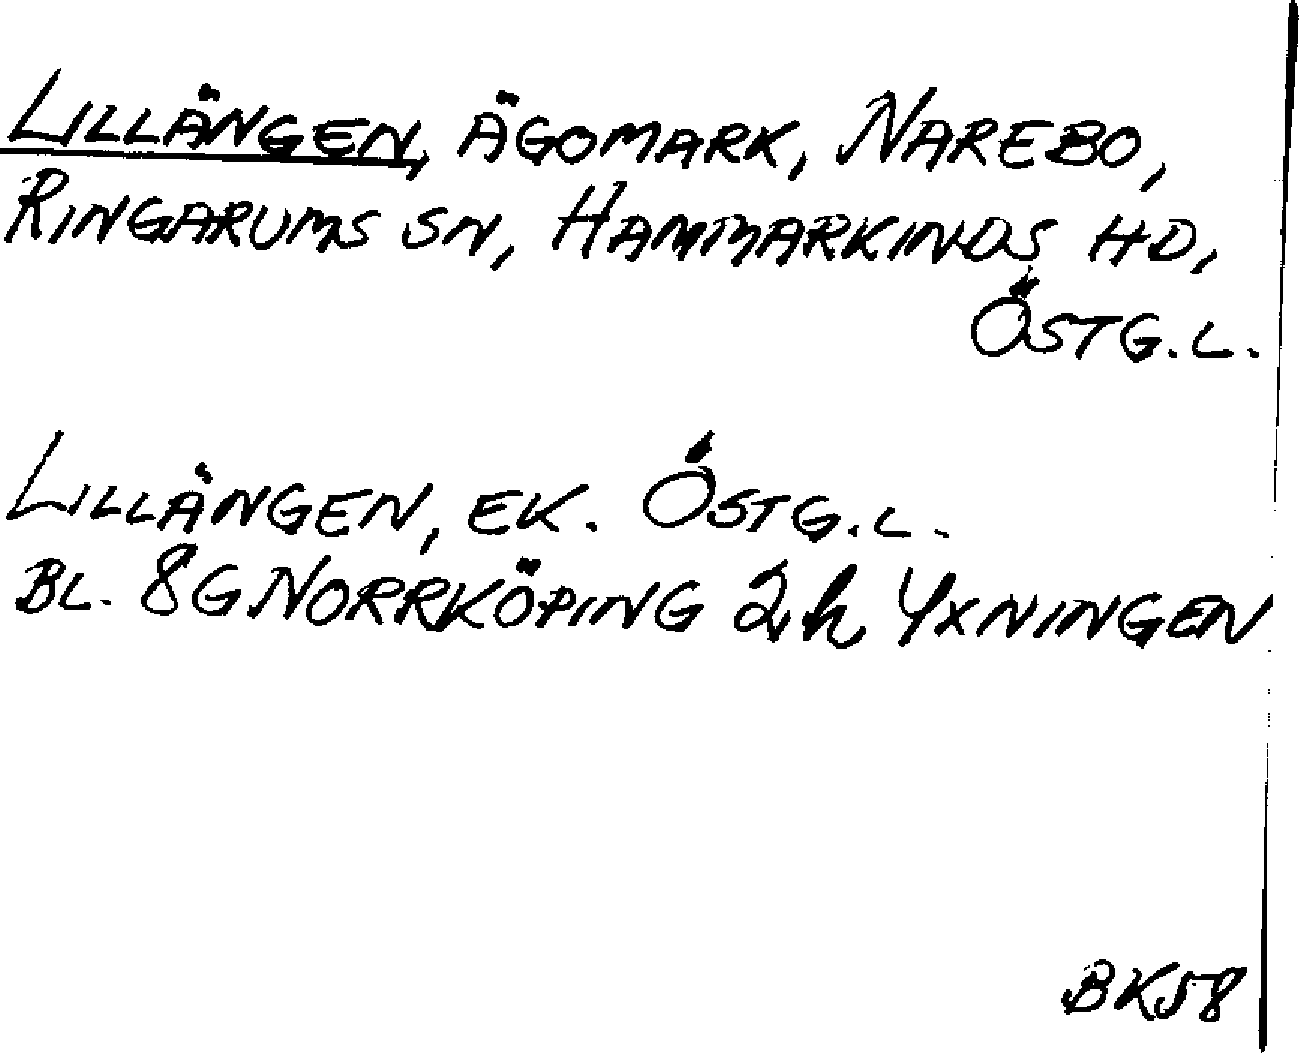 LILLÄNGEN, ÄGOMARK, NAREBO,
RINGARUMS SN, HAMMARKINDS HD,
ÖSTG.L.
LILLÄNGEN, EK. ÖSTG.L.
BL. 8G NORRKÖPING 2h YXNINGEN
BK58